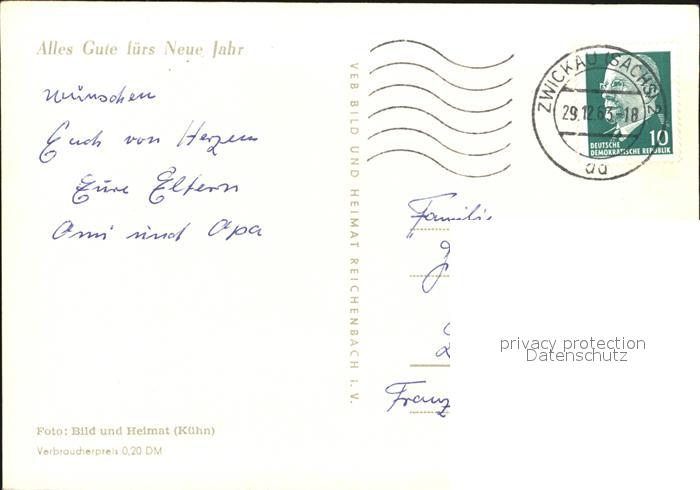 Alles Gute fürs Neue Jahr
wünschen
Euch von Herzen
Eure Eltern
Omi und Opa
Foto: Bild und Heimat (Kühn)
Verbraucherpreis 0,20 DM
VEB BILD UND HEIMAT REICHENBACH i. V.
ZWICKAU (SACHS) 2
29.12.63-18
10
DEUTSCHE
DEMOKRATISCHE REPUBLIK
Familie
Franz
privacy protection
Datenschutz